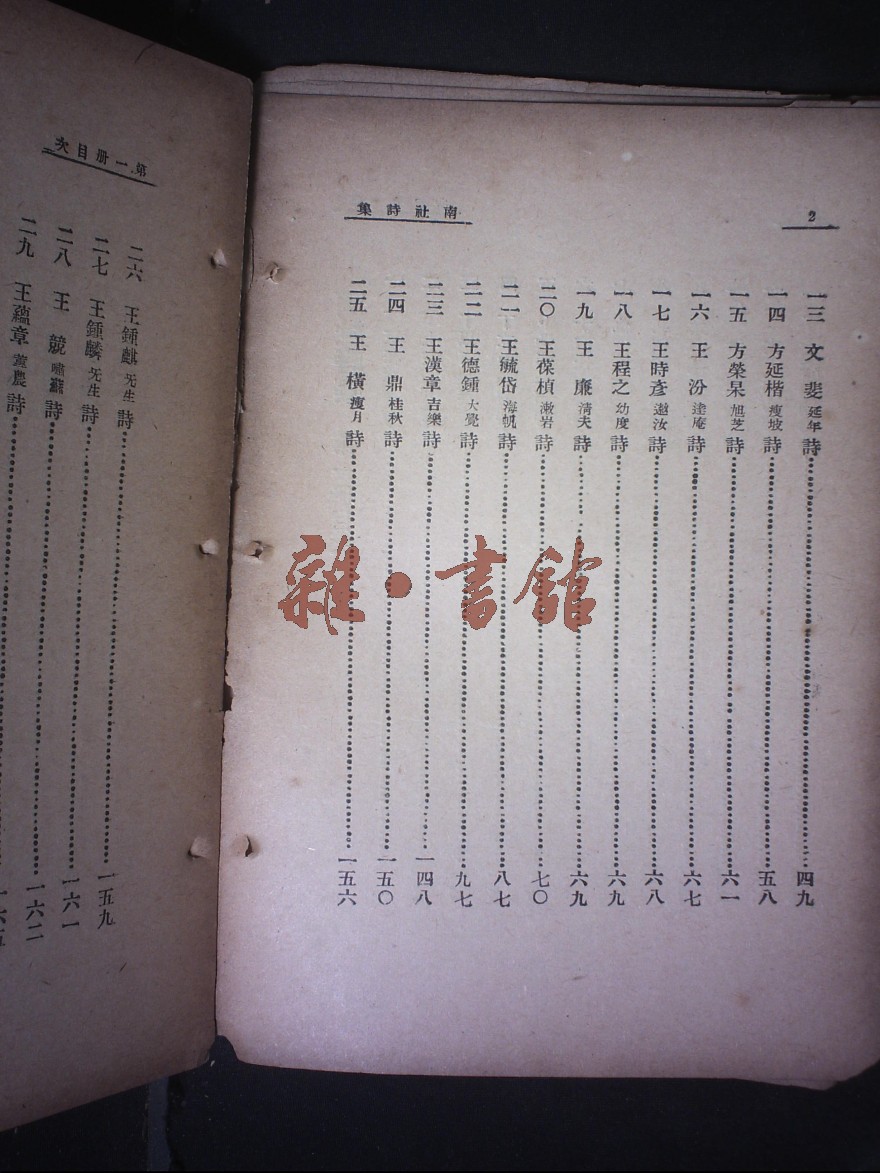 2
南社詩集
一三 文斐 延年 詩 四九
一四 方延楷 瘦坡 詩 五八
一五 方榮杲 旭芝 詩 六一
一六 王汾 逵庵 詩 六七
一七 王時彥 遨汝 詩 六八
一八 王程之 幼度 詩 六九
一九 王廉 淸夫 詩 六九
二〇 王葆楨 漱岩 詩 七〇
二一 王毓岱 海帆 詩 八七
二二 王德鍾 大覺 詩 九七
二三 王漢章 吉樂 詩 一四八
二四 王鼎 桂秋 詩 一五〇
二五 王橫 瘦月 詩 一五六
第一册目次
二六 王鍾麒 无生 詩 一五九
二七 王鍾麟 无生 詩 一六一
二八 王競 嘯蘇 詩 一六二
二九 王蘊章 蓴農 詩
雜·書館